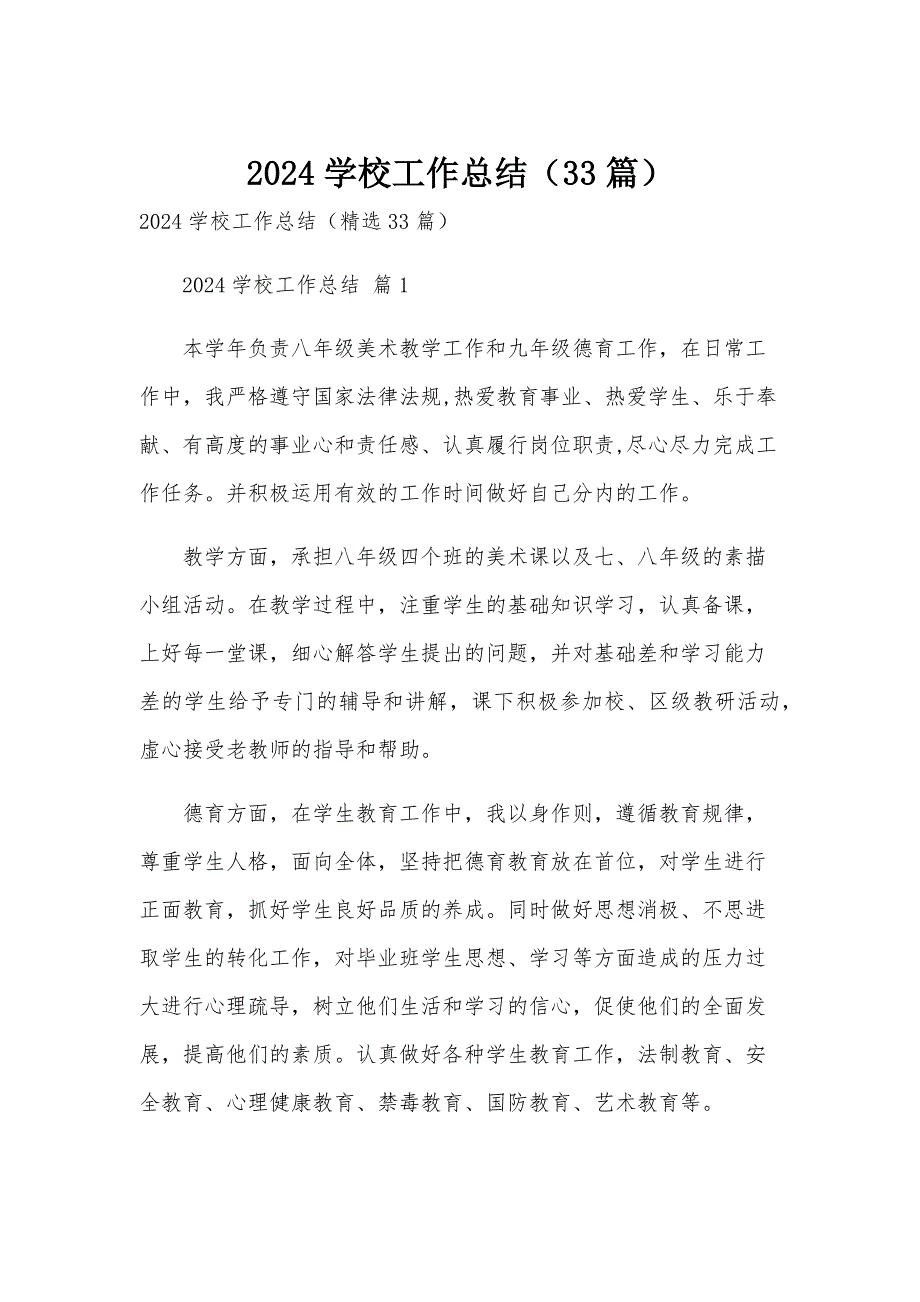 2024 学校工作总结（33 篇）
2024 学校工作总结（精选 33 篇）
2024 学校工作总结 篇 1
本学年负责八年级美术教学工作和九年级德育工作，在日常工
作中，我严格遵守国家法律法规,热爱教育事业、热爱学生、乐于奉
献、有高度的事业心和责任感、认真履行岗位职责,尽心尽力完成工
作任务。并积极运用有效的工作时间做好自己分内的工作。
教学方面，承担八年级四个班的美术课以及七、八年级的素描
小组活动。在教学过程中，注重学生的基础知识学习，认真备课，
上好每一堂课，细心解答学生提出的问题，并对基础差和学习能力
差的学生给予专门的辅导和讲解，课下积极参加校、区级教研活动，
虚心接受老教师的指导和帮助。
德育方面，在学生教育工作中，我以身作则，遵循教育规律，
尊重学生人格，面向全体，坚持把德育教育放在首位，对学生进行
正面教育，抓好学生良好品质的养成。同时做好思想消极、不思进
取学生的转化工作，对毕业班学生思想、学习等方面造成的压力过
大进行心理疏导，树立他们生活和学习的信心，促使他们的全面发
展，提高他们的素质。认真做好各种学生教育工作，法制教育、安
全教育、心理健康教育、禁毒教育、国防教育、艺术教育等。